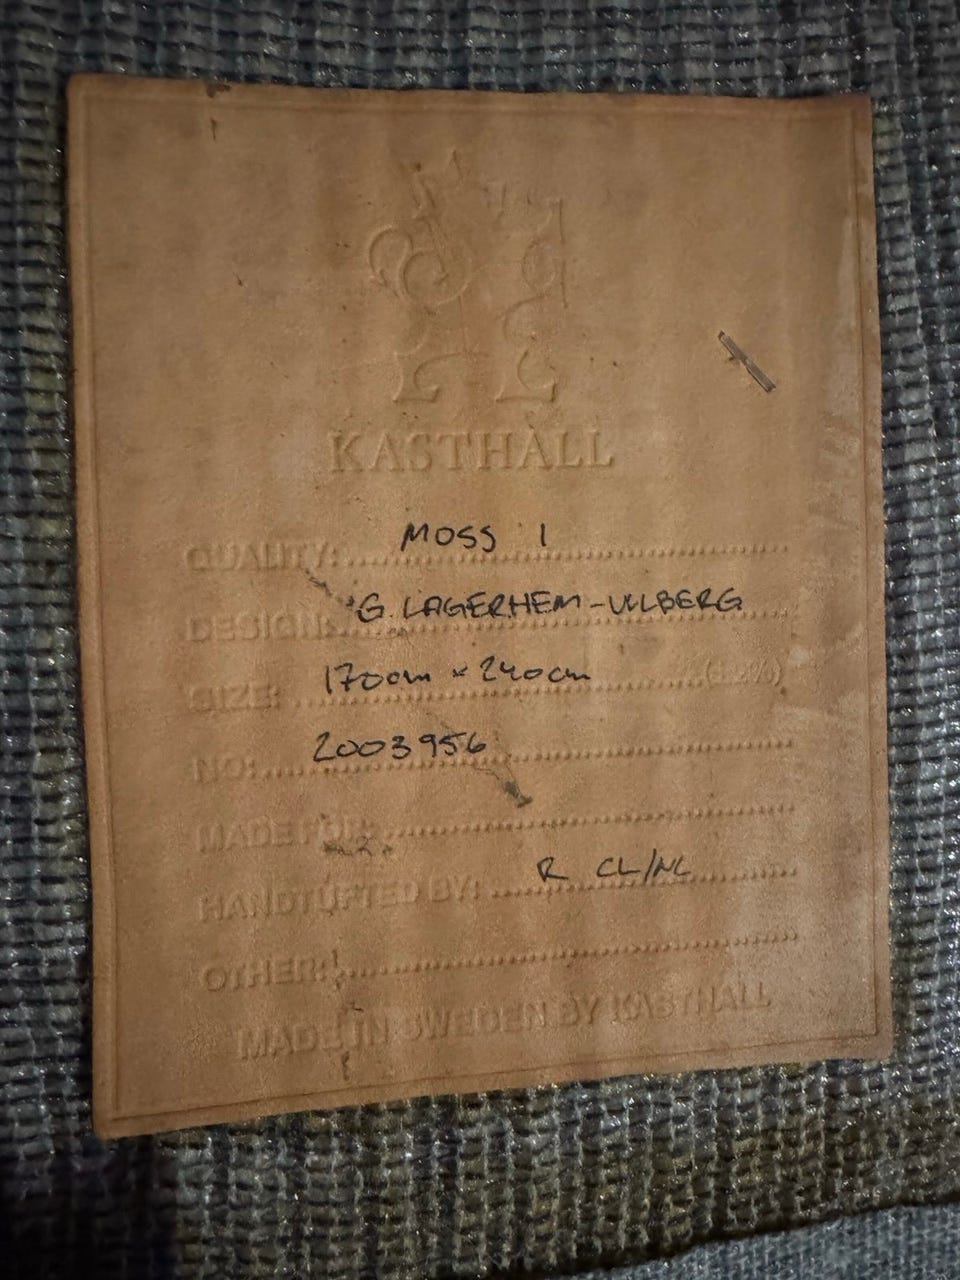 KASTHALL
QUALITY: MOSS 1
DESIGN: G. LAGERHEM-ULLBERG
SIZE: 170cm x 240cm (± 2%)
NO: 2003956
MADE FOR:
HANDTUFTED BY: R CL/NC
OTHER:
MADE IN SWEDEN BY KASTHALL